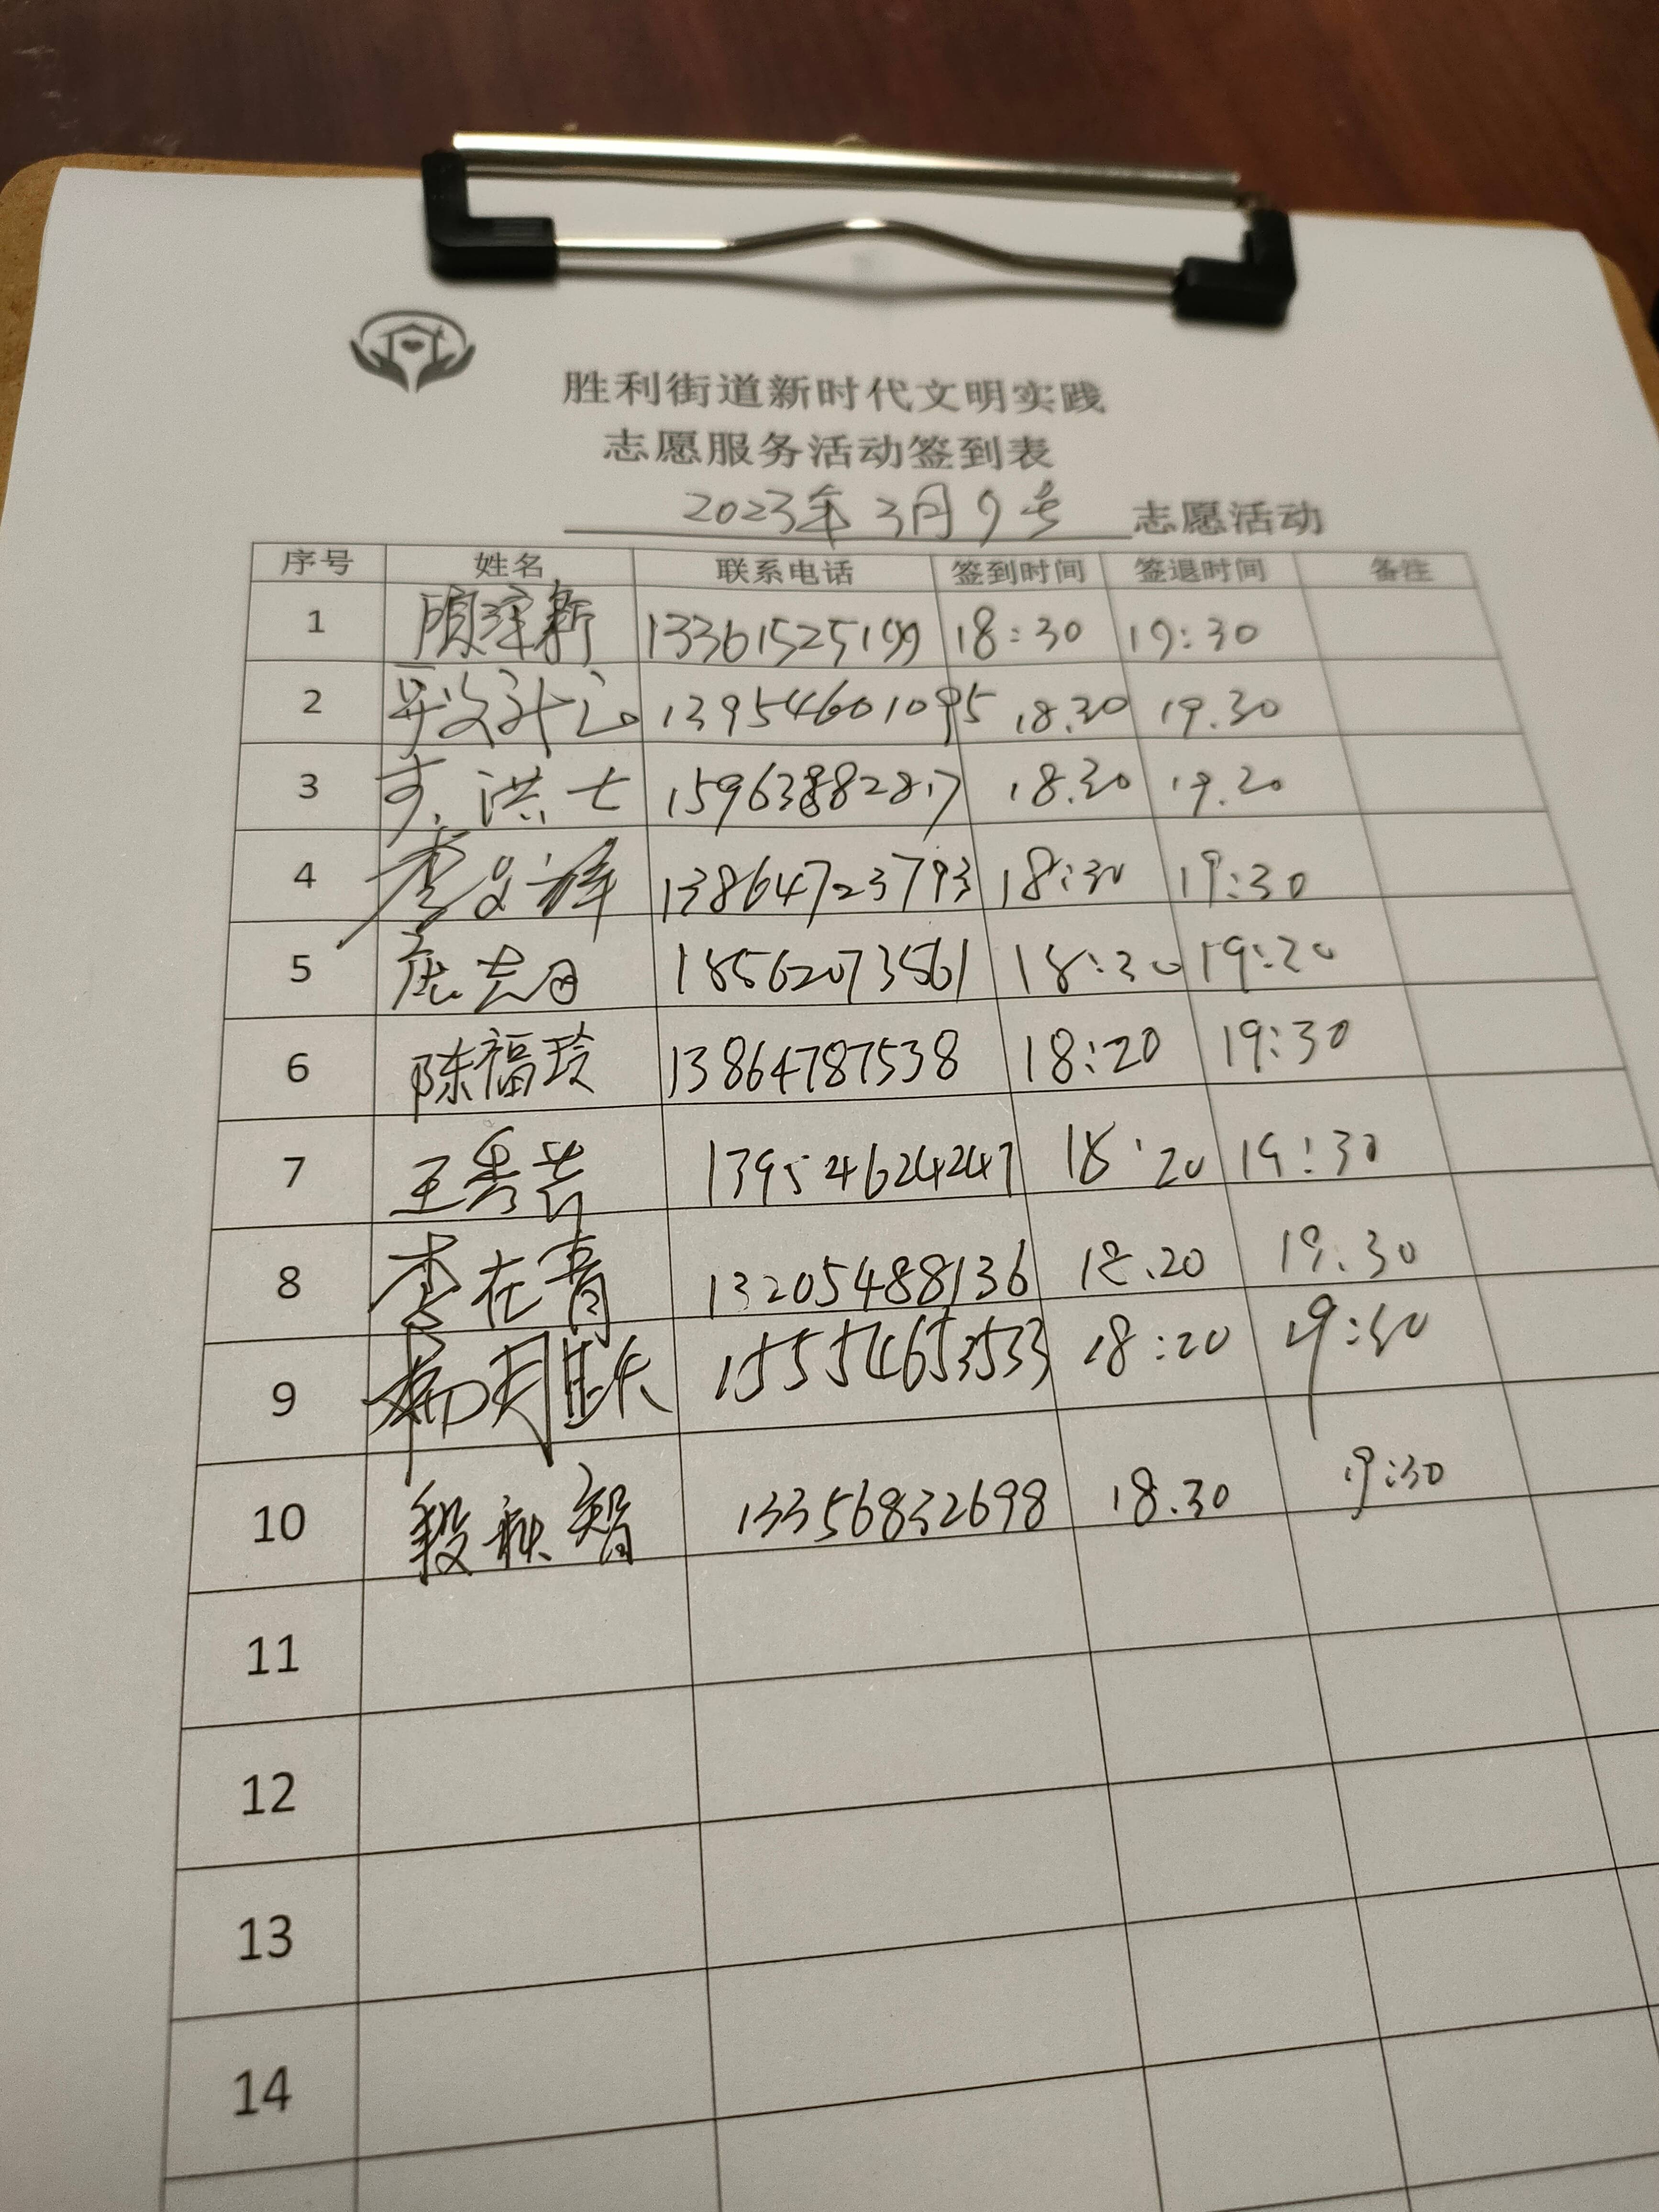 胜利街道新时代文明实践
志愿服务活动签到表
2023年3月9号 志愿活动
序号 姓名 联系电话 签到时间 签退时间 备注
1 13361525199 18:30 19:30
2 13954601095 18.30 19.30
3 洪 15963882817 18.30 19.20
4 李 13864723793 18:30 19:30
5 18562073561 18:20 19:20
6 陈福玲 13864787538 18:20 19:30
7 王秀芳 13954624247 18:20 19:30
8 李在青 13205488136 18.20 19.30
9 15554653533 18:20 19:30
10 段 智 13356832698 18.30 19:30
11
12
13
14